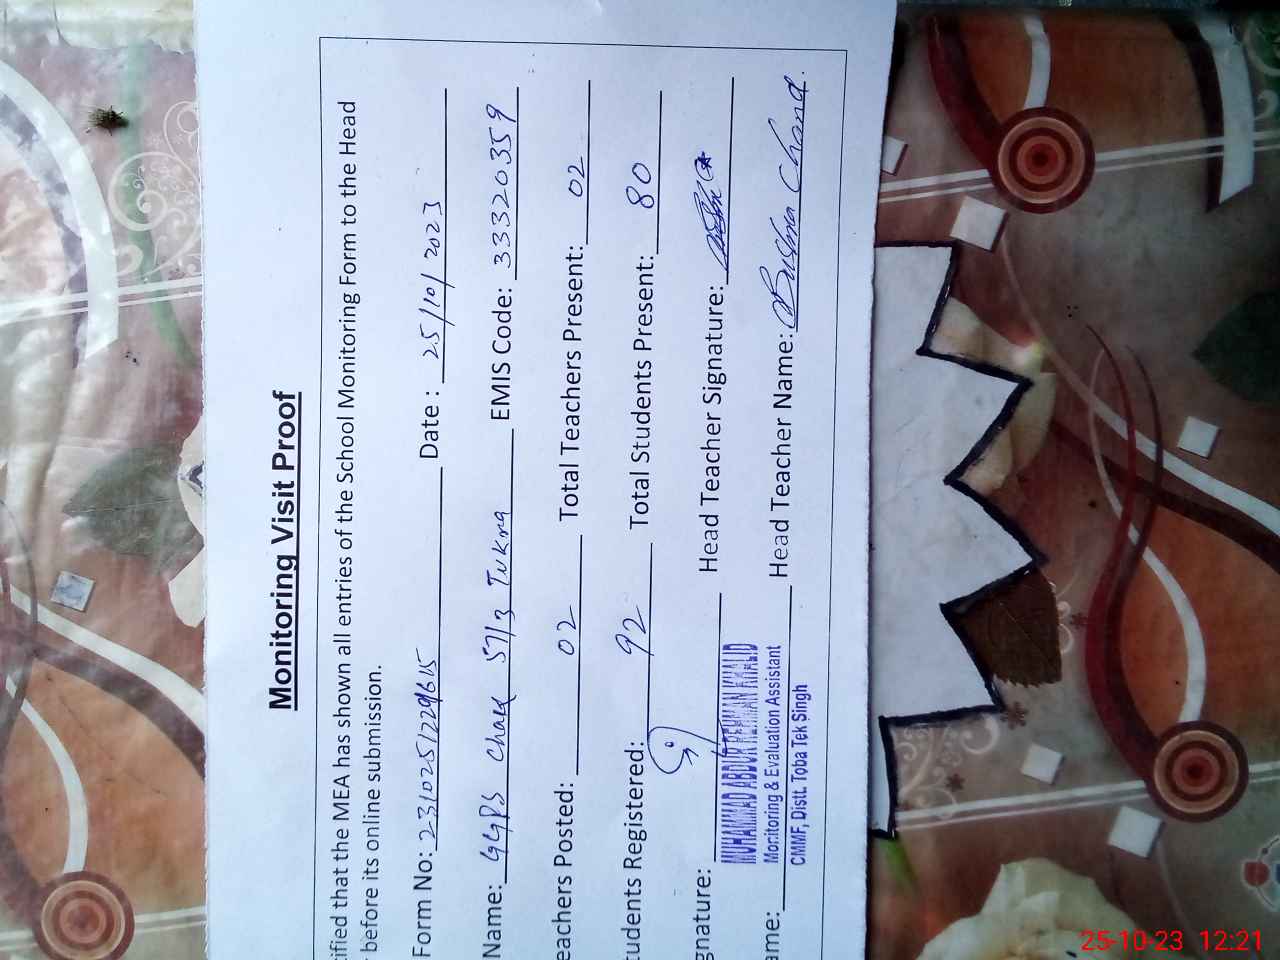 Monitoring Visit Proof
ified that the MEA has shown all entries of the School Monitoring Form to the Head
before its online submission.
Form No: Date: 25/10/2023
Name: GGPS Chak 57/3 Tukra EMIS Code: 33320359
eachers Posted: 02 Total Teachers Present: 02
tudents Registered: 92 Total Students Present: 80
gnature: Head Teacher Signature:
MUHAMMAD ABDUR REHMAN KHALID
Monitoring & Evaluation Assistant
CMMF, Distt. Toba Tek Singh
ame: Head Teacher Name: Bushra Chand.
25-10-23 12:21